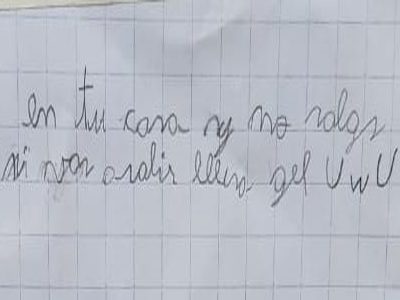 en tu casa y no salgs
si vas a salir lleva gel UwU